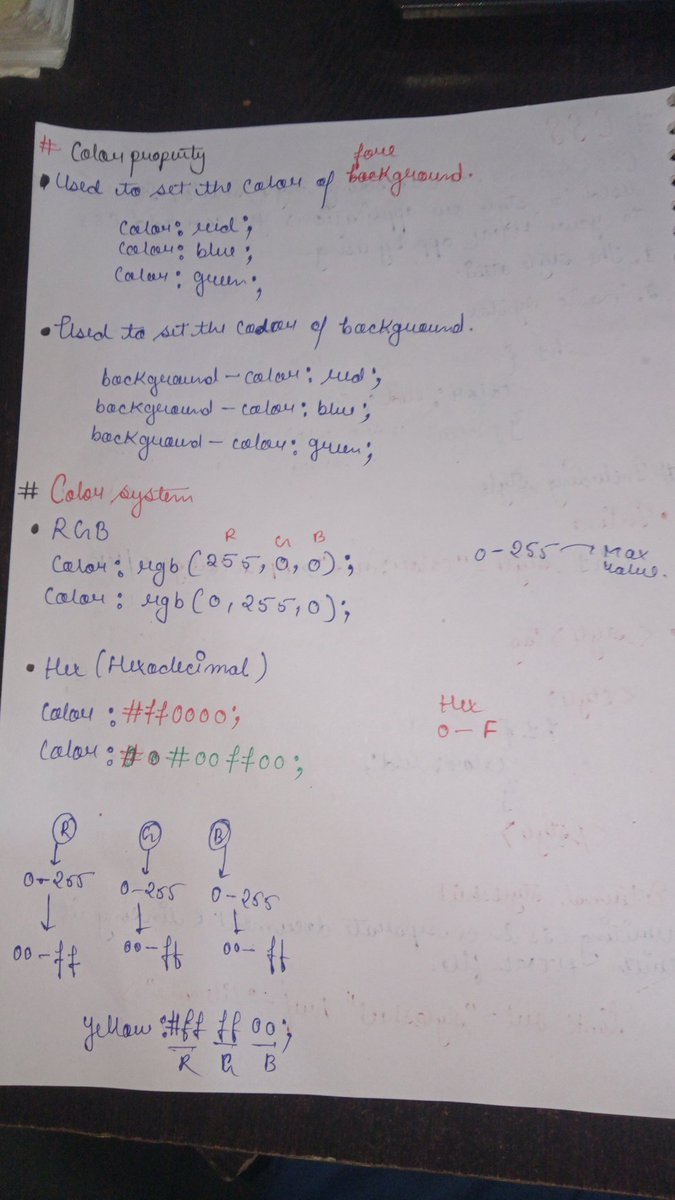 # Color property
fore
• Used to set the color of background.
color: red;
color: blue;
color: green;
• Used to set the color of background.
background-color: red;
background-color: blue;
background-color: green;
# Color system
• RGB
R G B
Color: rgb(255,0,0); 0-255 → Max value.
Color: rgb(0,255,0);
• Hex (Hexadecimal)
Color: #ff0000; Hex
0-F
Color: #00ff00;
R G B
0-255 0-255 0-255
00-ff 00-ff 00-ff
Yellow: #ff ff 00;
R G B